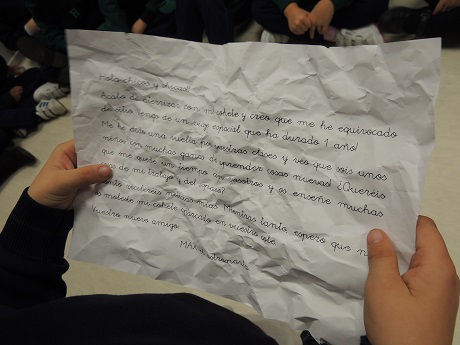 Hola chicos y chicas!
Acabo de aterrizar con mi cohete y creo que me he equivocado
de sitio. Vengo de un viaje espacial que ha durado 1 año!
Me he dado una vuelta por vuestras clases y veo que sois unos
niños con muchas ganas de aprender cosas nuevas! ¿Queréis
que me quede un tiempo con vosotros y os enseñe muchas
cosas de mi trabajo y del espacio?
Pronto recibiréis noticias mías. Mientras tanto espero que no
os moleste mi cohete aparcado en vuestro
Vuestro nuevo amigo.
MAX